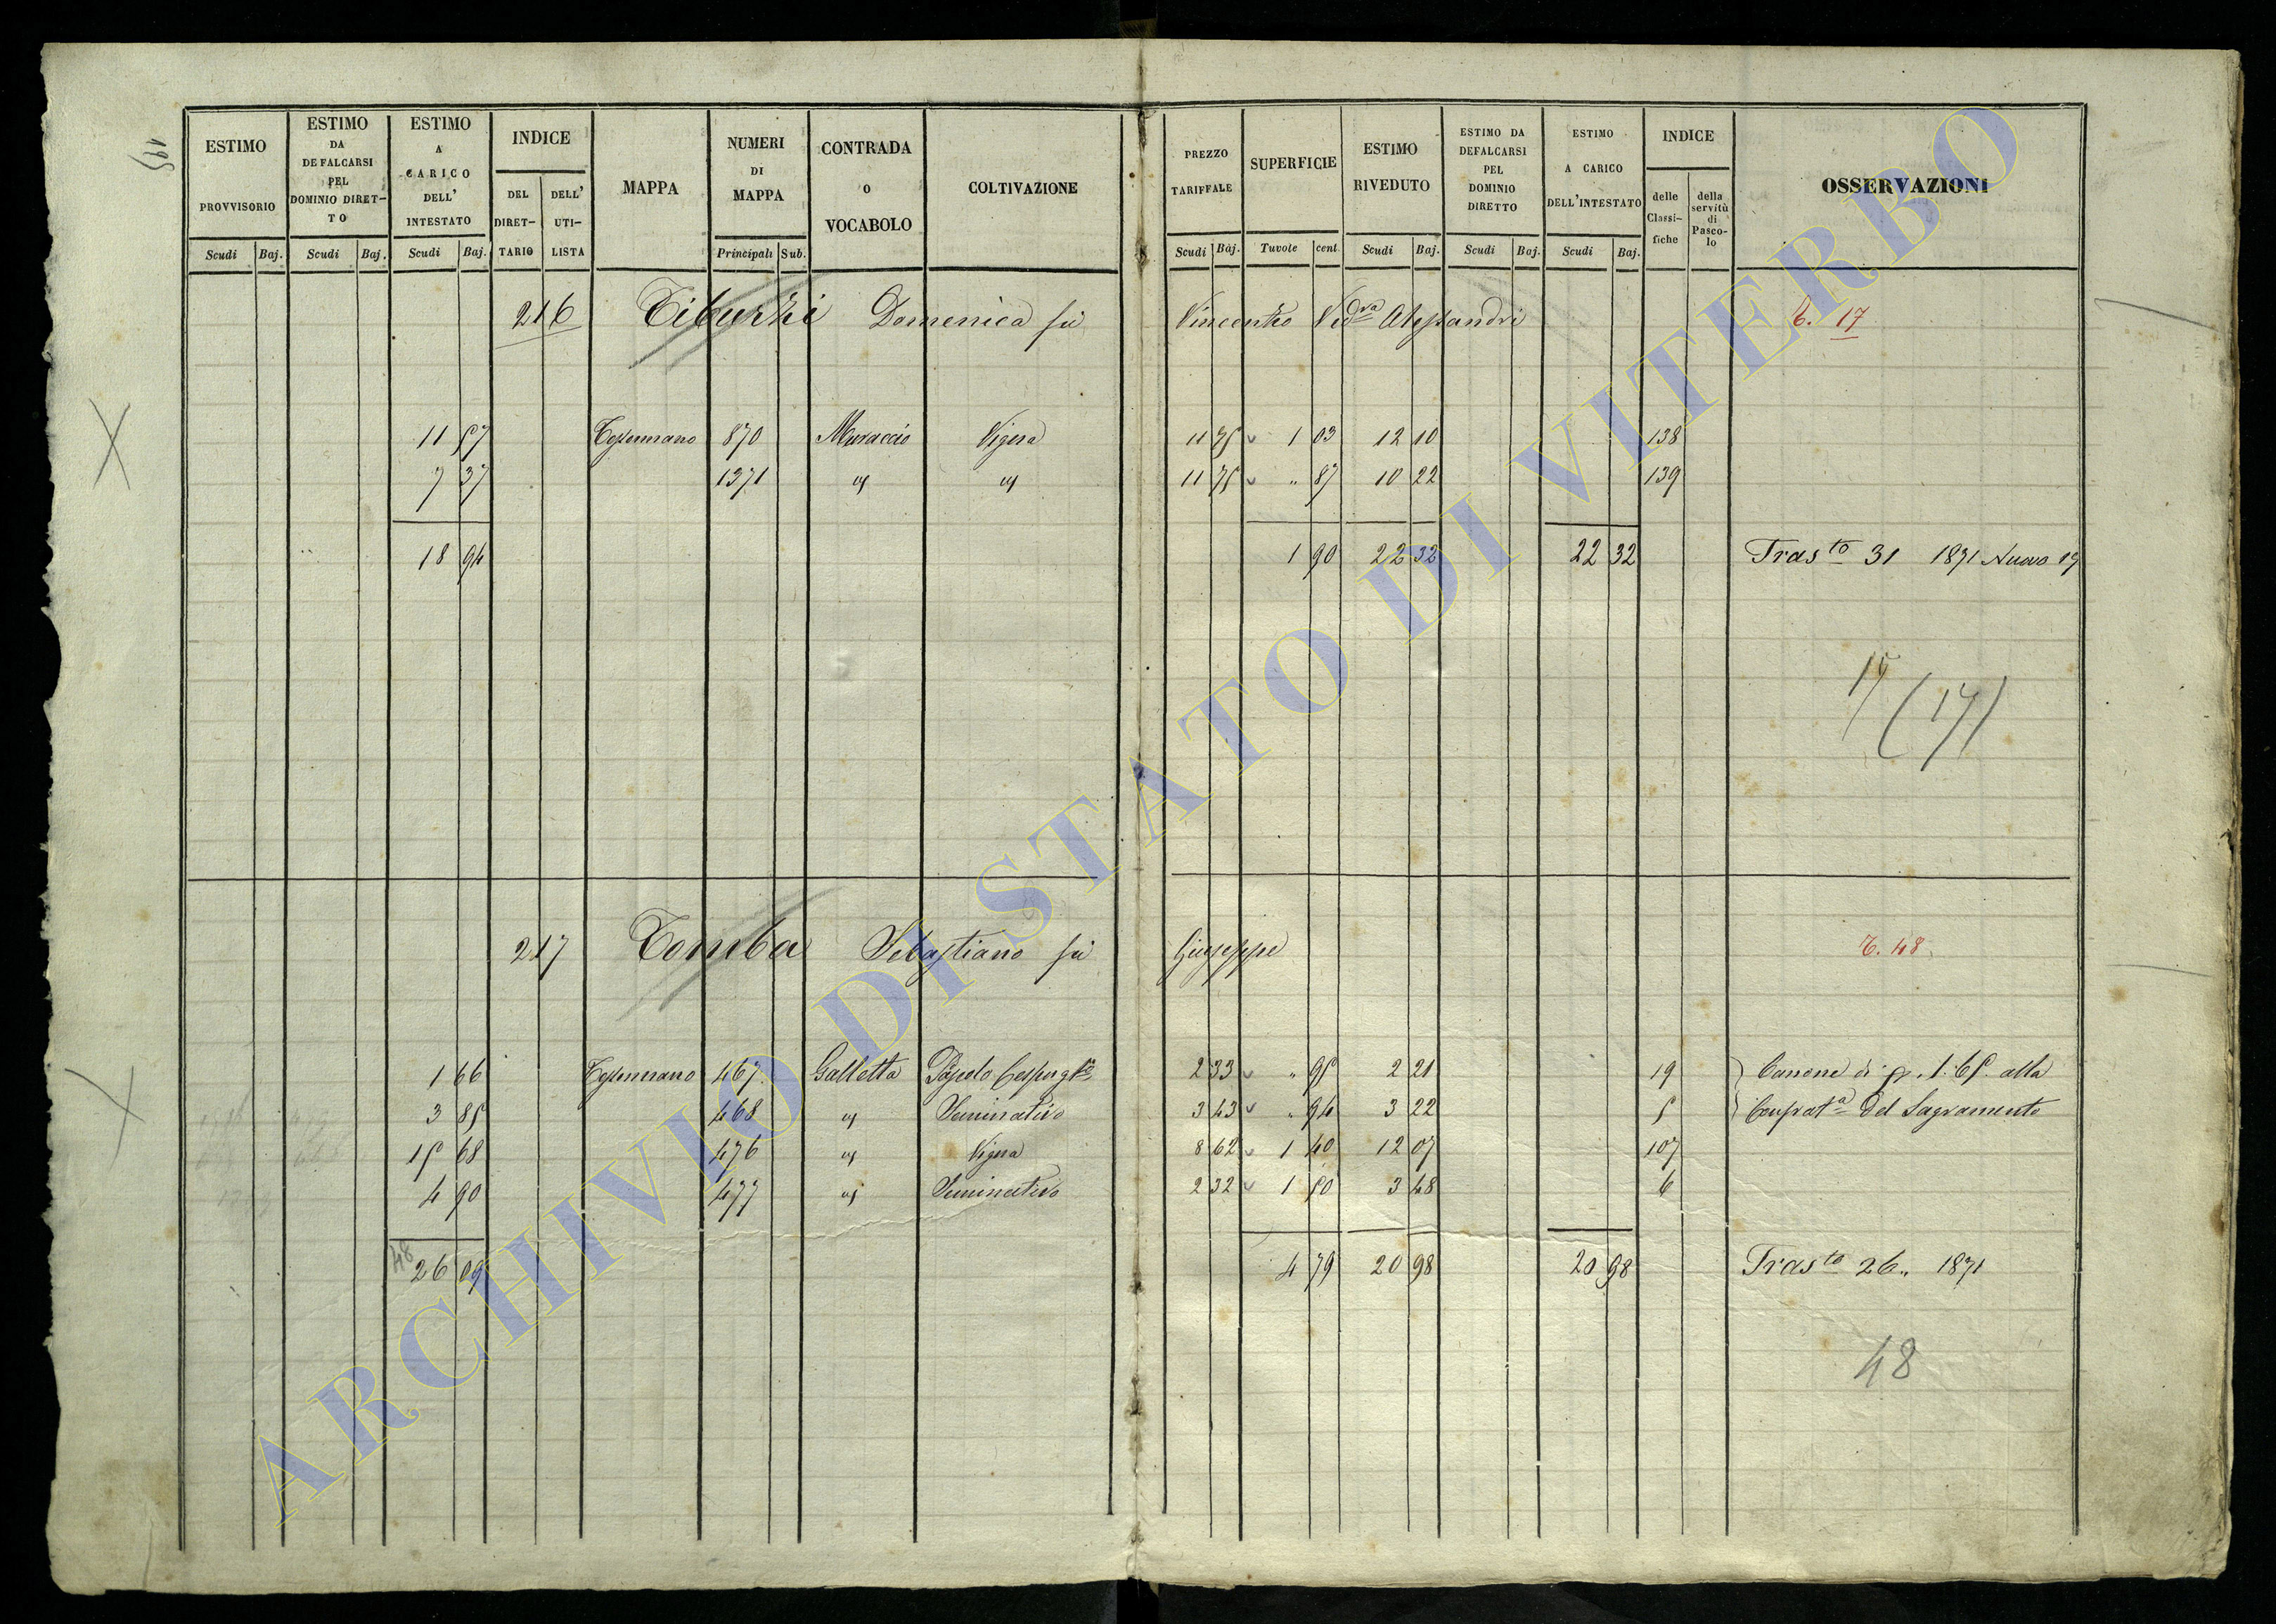 195
ESTIMO PROVVISORIO
ESTIMO DA DEFALCARSI PEL DOMINIO DIRET-TO
ESTIMO A CARICO DELL' INTESTATO
INDICE
DEL DIRET-TARIO
DELL' UTI-LISTA
MAPPA
NUMERI DI MAPPA
CONTRADA O VOCABOLO
COLTIVAZIONE
PREZZO TARIFFALE
SUPERFICIE
ESTIMO RIVEDUTO
ESTIMO DA DEFALCARSI PEL DOMINIO DIRETTO
ESTIMO A CARICO DELL'INTESTATO
INDICE
delle Classi-fiche
della servitù di Pasco-lo
OSSERVAZIONI
Scudi Baj. Scudi Baj. Scudi Baj. Principali Sub. Scudi Baj. Tavole cent. Scudi Baj. Scudi Baj. Scudi Baj.
216 Tiburzi Domenica fu Vincenzo Ved.va Alessandri T. 17
11 57 870 Muraccio Vigna 11 75 1 03 12 10 138
7 37 1371 11 75 " 87 10 22 139
18 94 1 90 22 32 22 32 Tras.to 31 1871 Nuovo 17
17 (17)
217 Tomba Sebastiano fu Giuseppe T. 48
1 66 467 Galletta 2 33 " 95 2 21 19 Canone di 1:65 alla
3 85 468 Seminativo 3 43 " 94 3 22 5 Confrat.a del Sagramento
15 68 476 Vigna 8 62 1 40 12 07 107
4 90 477 Seminativo 2 32 1 50 3 48 6
48
26 09 4 79 20 98 20 98 Tras.to 26. 1871
48
ARCHIVIO DI STATO DI VITERBO